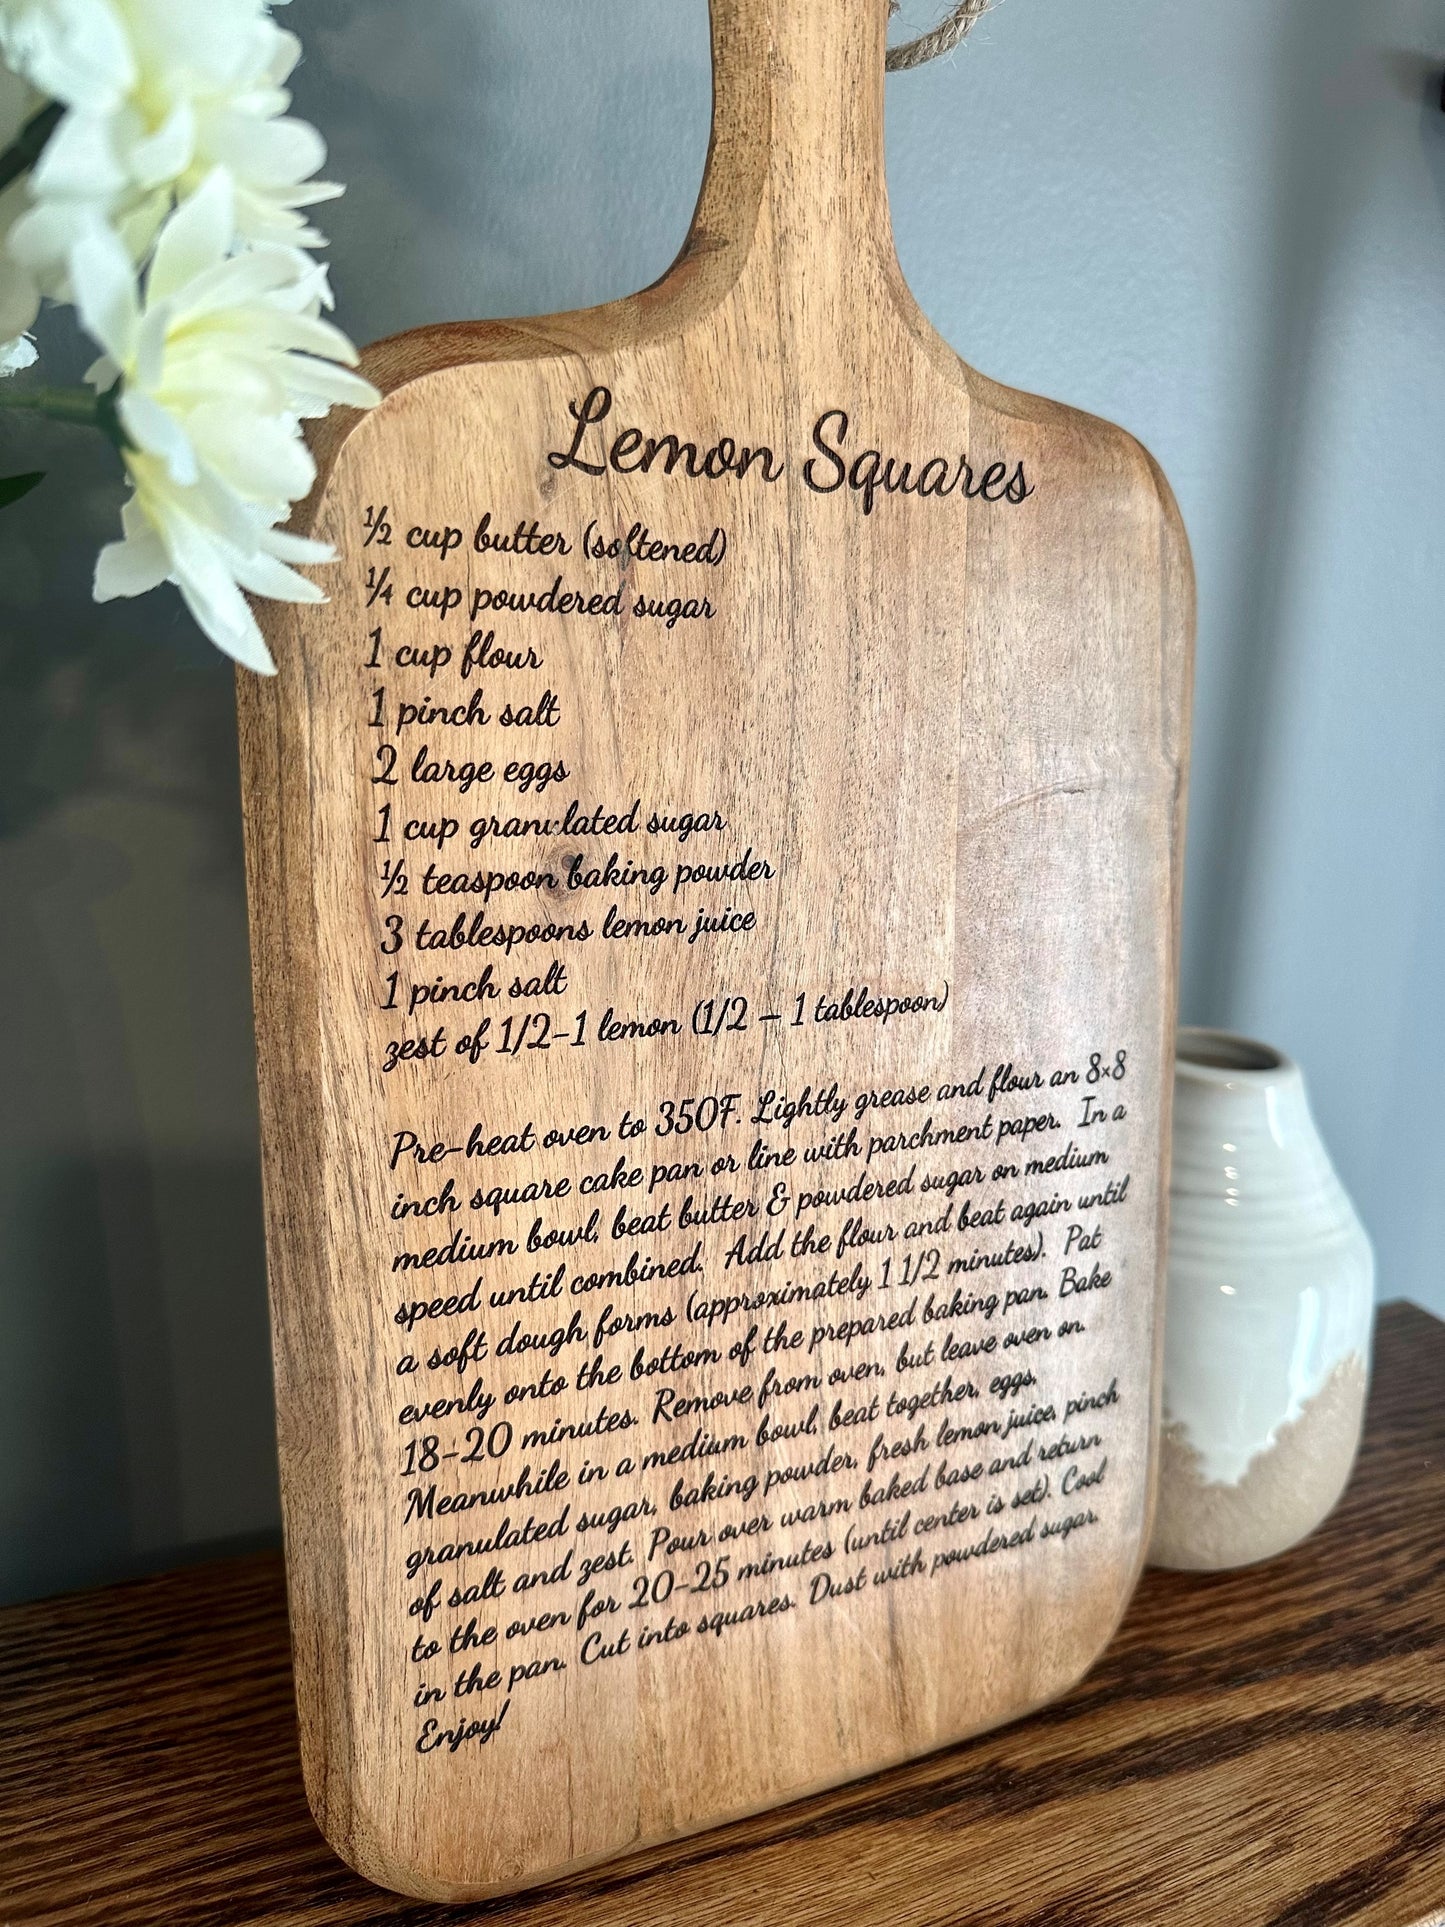 Lemon Squares
½ cup butter (softened)
¼ cup powdered sugar
1 cup flour
1 pinch salt
2 large eggs
1 cup granulated sugar
½ teaspoon baking powder
3 tablespoons lemon juice
1 pinch salt
zest of 1/2-1 lemon (1/2 – 1 tablespoon)
Pre-heat oven to 350F. Lightly grease and flour an 8×8
inch square cake pan or line with parchment paper. In a
medium bowl, beat butter & powdered sugar on medium
speed until combined. Add the flour and beat again until
a soft dough forms (approximately 1 1/2 minutes). Pat
evenly onto the bottom of the prepared baking pan. Bake
18-20 minutes. Remove from oven, but leave oven on.
Meanwhile in a medium bowl, beat together, eggs,
granulated sugar, baking powder, fresh lemon juice, pinch
of salt and zest. Pour over warm baked base and return
to the oven for 20-25 minutes (until center is set). Cool
in the pan. Cut into squares. Dust with powdered sugar.
Enjoy!